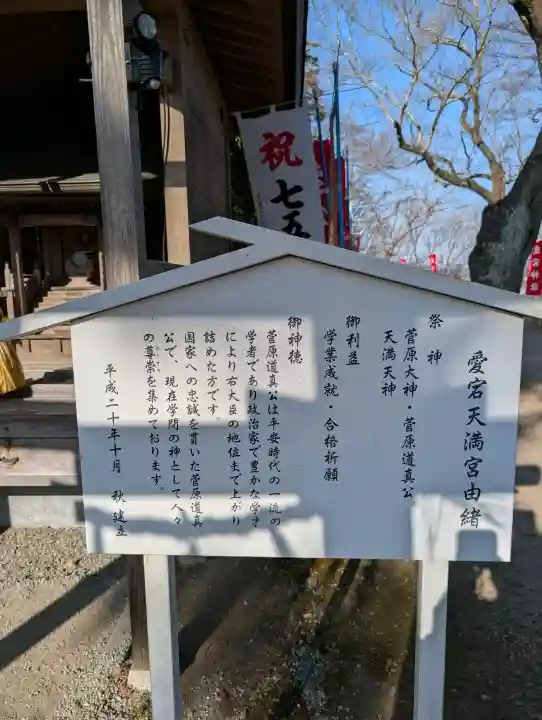 愛宕天満宮由緒
祭神
菅原大神・菅原道真公
天満天神
御利益
学業成就・合格祈願
御神徳
菅原道真公は平安時代の一流の
学者であり政治家で豊かな学き
により右大臣の地位まで上がり
詰めた方です。
国家への忠誠を貫いた菅原道真
公で、現在学問の神として人々
の尊崇を集めております。
平成二十年十月 秋建立
祝
七五